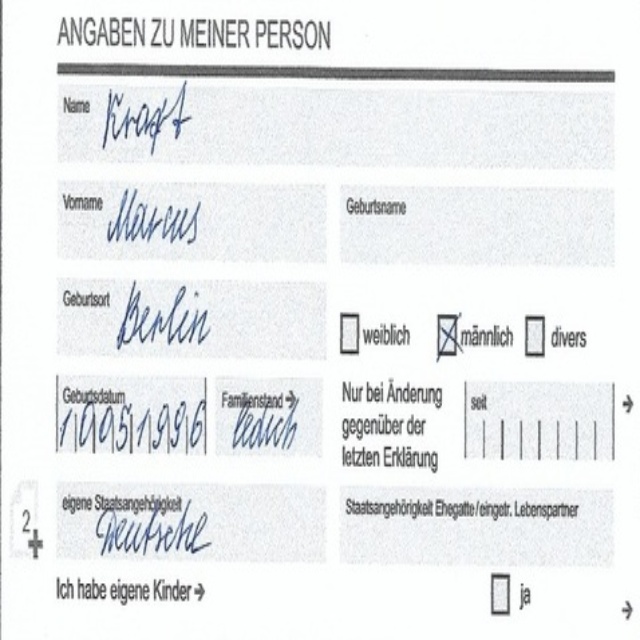 ANGABEN ZU MEINER PERSON
Name Kraft
Vorname Marcus
Geburtsname
Geburtsort Berlin
weiblich männlich divers
Geburtsdatum 10051996
Familienstand → ledich
Nur bei Änderung
gegenüber der
letzten Erklärung
seit →
2
eigene Staatsangehörigkeit Deutsche
Staatsangehörigkeit Ehegatte/eingetr. Lebenspartner
Ich habe eigene Kinder → ja →